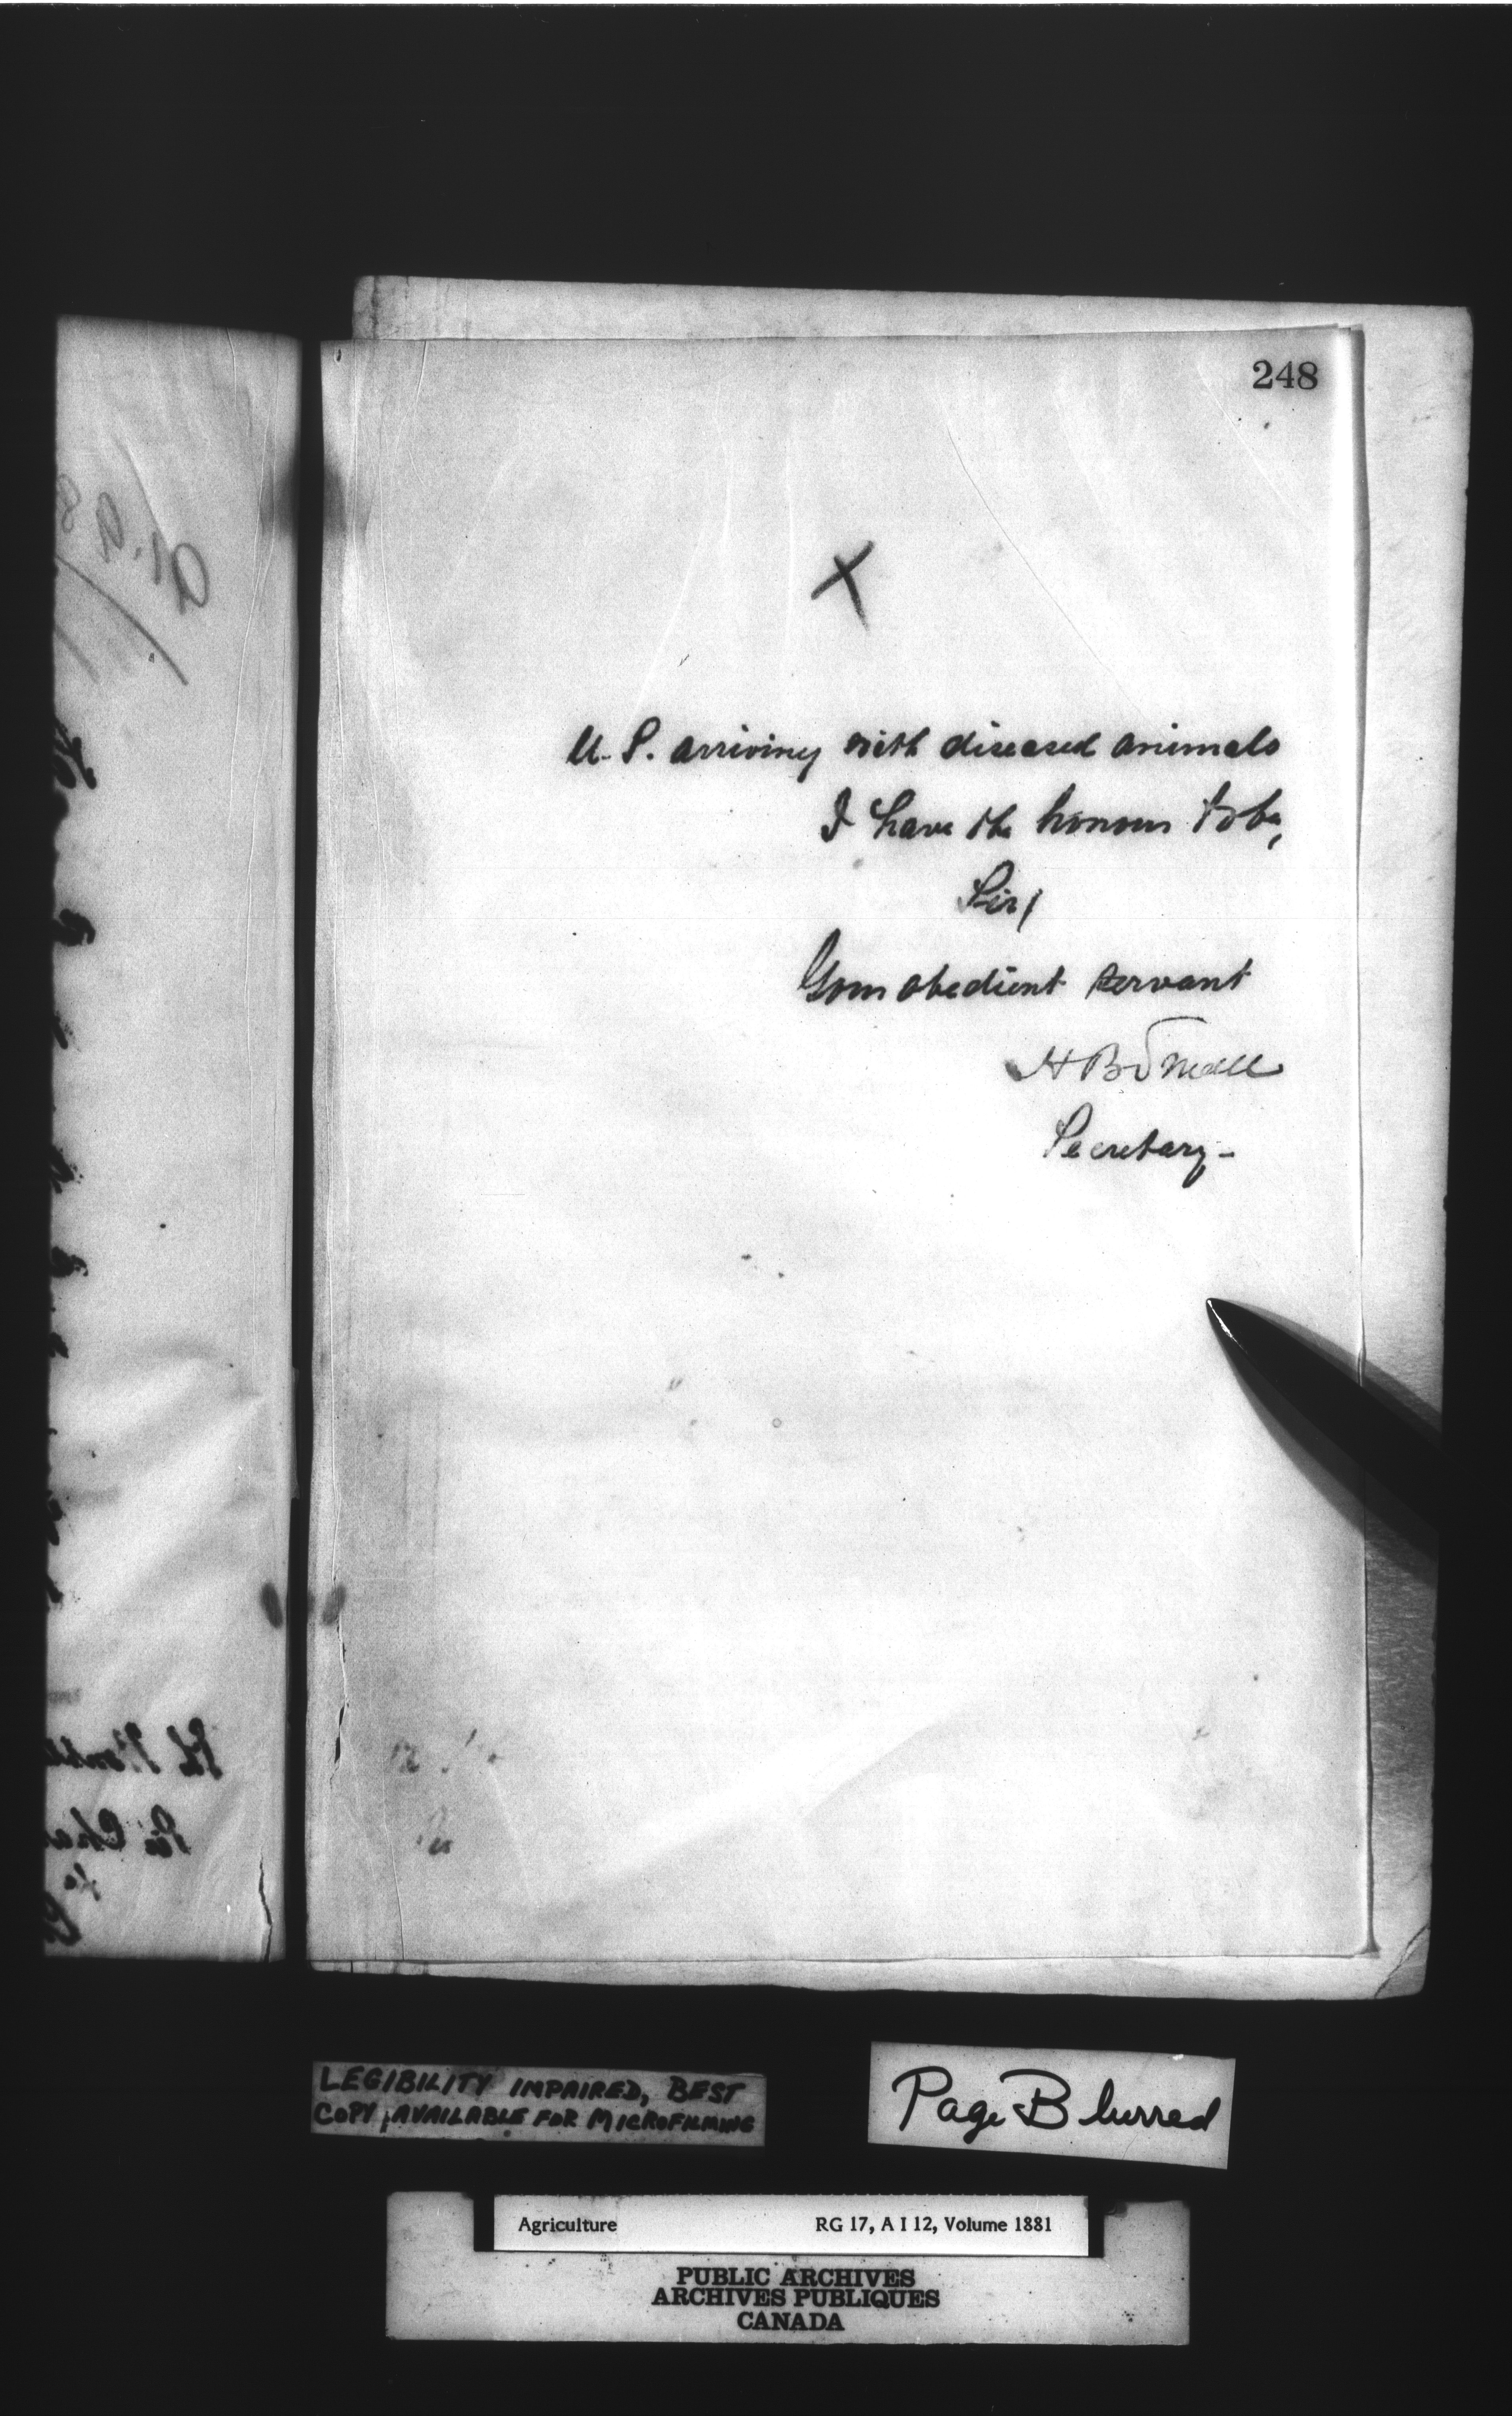 248
X
U.S. arriving with diseased animals
I have the honour to be,
Sir,
Your obedient servant
H B Small
Secretary -
LEGIBILITY IMPAIRED, BEST
COPY AVAILABLE FOR MICROFILMING
Page Blurred
Agriculture RG 17, A I 12, Volume 1881
PUBLIC ARCHIVES
ARCHIVES PUBLIQUES
CANADA